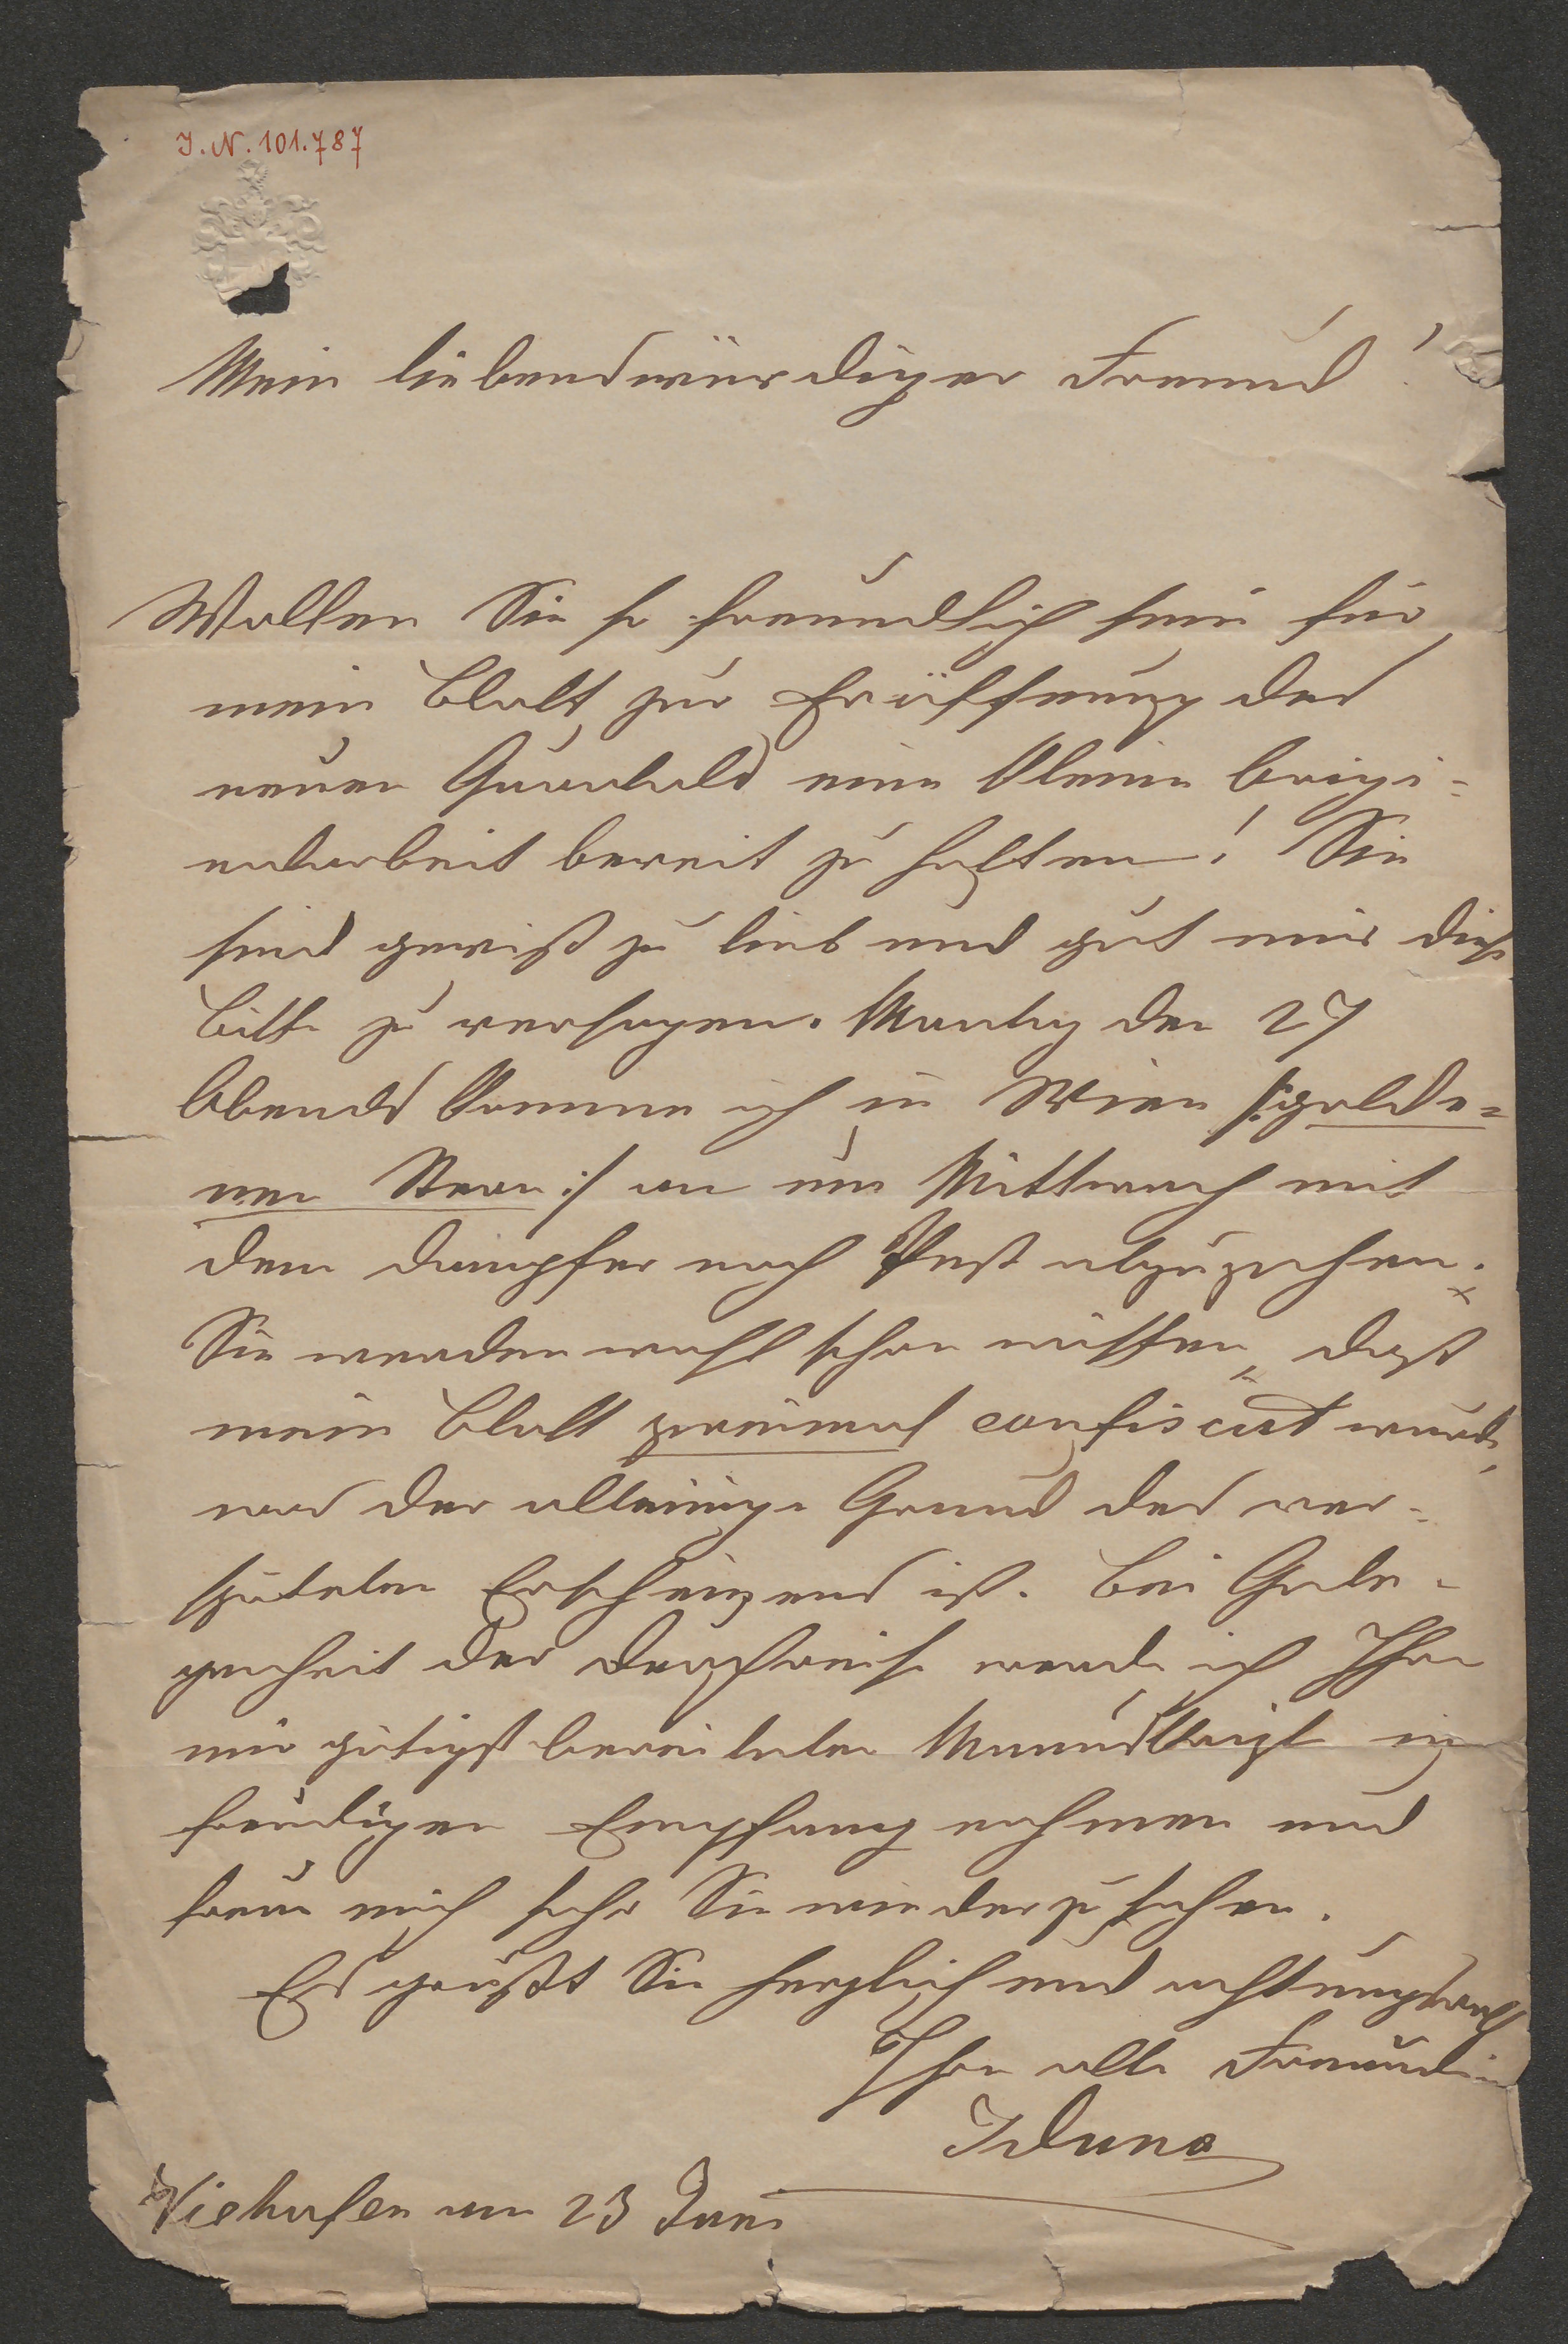 I.N. 101.787
Mein liebenswürdiger Freund!
Wollen Sie so freundlich sein für
mein Blatt zur Eröffnung des
neuen Quartals eine kleine Origi=
nalarbeit bereit zu halten! Sie
sind gewiß zu lieb und gut mir diese
Bitte zu versagen. Montag den 27
Abends komme ich in Wien /:golde=
nen Stern:/ an um Mittwoch mit
dem Dampfer nach Pest abzugehen.
Sie werden wohl schon wissen, daß
mein Blatt zweimal confiscirt wurde,
was der alleinige Grund des ver=
späteten Erscheinens ist. Bei Gele=
genheit der Durchreise werde ich Ihre
mir gütigst bereiteten in
freudigen Empfang nehmen und
freue mich sehr Sie wiederzusehen.
Es grüßt Sie herzlich und achtungsvoll
Ihre alte Freundin
Iduna
Viehofen am 23 Juni